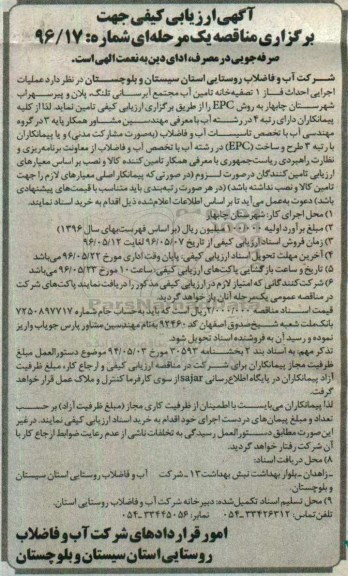 آگهی ارزیابی کیفی جهت
برگزاری مناقصه یک مرحله‌ای شماره: ۹۶/۱۷
صرفه‌جویی در مصرف، ادای دین به نعمت الهی است.
شرکت آب و فاضلاب روستایی استان سیستان و بلوچستان در نظر دارد عملیات
اجرایی احداث فاز ۱ تصفیه‌خانه تامین آب مجتمع آبرسانی تلنگ، پلان و پیرسهراب
شهرستان چابهار به روش EPC را از طریق برگزاری ارزیابی کیفی تامین نماید. لذا از کلیه
پیمانکاران دارای رتبه ۴ در رشته آب با معرفی مهندسین مشاور همکار پایه ۳ در گروه
مهندسی آب با تخصص تاسیسات آب و فاضلاب (به‌صورت مشارکت مدنی) و یا پیمانکاران
با رتبه ۳ طرح و ساخت (EPC) در رشته آب با تخصص آب و فاضلاب از معاونت برنامه‌ریزی و
نظارت راهبردی ریاست‌جمهوری با معرفی همکار تامین کننده کالا و نصب بر اساس معیارهای
ارزیابی تامین کنندگان در صورت لزوم (در صورتی که پیمانکار اصلی معیارهای لازم را جهت
تامین کالا و نصب نداشته باشد) (در هر صورت رتبه‌بندی باید متناسب با قیمت‌های پیشنهادی
باشد) دعوت به‌عمل می‌آید تا بر اساس اطلاعات اعلام‌شده ذیل اقدام به خرید اسناد نمایند.
۱) محل اجرای کار: شهرستان چابهار
۲) مبلغ برآورد اولیه ۱۰۰/۰۰۰ میلیون ریال (بر اساس فهرست‌بهای سال ۱۳۹۶)
۳) زمان فروش اسناد ارزیابی کیفی از تاریخ ۹۶/۰۵/۰۷ لغایت ۹۶/۰۵/۱۲
۴) آخرین مهلت تحویل اسناد ارزیابی کیفی: پایان وقت اداری مورخ ۹۶/۰۵/۲۲ می‌باشد
۵) تاریخ و ساعت بازگشایی پاکت‌های ارزیابی کیفی: ساعت ۱۰ مورخ ۹۶/۰۵/۲۳ می‌باشد
۶) شرکت‌کنندگانی که امتیاز لازم در ارزیابی کیفی مذکور را دریافت نمایند پاکت‌های شرکت
در مناقصه عمومی یک‌مرحله‌ای آنان باز خواهد گردید.
قیمت اسناد مناقصه ریال است که باید به‌حساب جام شماره ۷۲۵۰۸۹۷۷۱۷
بانک‌ملت شعبه شیخ‌صدوق اصفهان کد ۹۲۴۶۰ به‌نام مهندسین مشاور پارس جویاب واریز
نموده و رسید آن به فروشنده اسناد تحویل شود.
تذکر مهم: به اسناد بند ۲ بخشنامه ۳۰۵۹۳ مورخ ۹۴/۰۵/۰۳ موضوع دستورالعمل مبلغ
ظرفیت مجاز پیمانکاران برای شرکت در مناقصه ارزیابی کیفی و ارجاع کار، مبلغ ظرفیت
آزاد پیمانکاران در پایگاه اطلاع‌رسانی sajar از سوی کارفرما کنترل و ملاک عمل قرار خواهد
گرفت.
لذا پیمانکاران می‌بایست با اطمینان از ظرفیت کاری مجاز (مبلغ ظرفیت آزاد) بر حسب
تعداد و مبلغ پیمان‌های در دست اجرای خود اقدام به خرید اسناد ارزیابی کیفی نمایند. در غیر
این صورت مطابق دستورالعمل رسیدگی به تخلفات ناشی از عدم رعایت ضوابط ارجاع کار با
آن شرکت رفتار خواهد گردید.
۸) محل دریافت اسناد:
ـ زاهدان ـ بلوار بهداشت نبش بهداشت ۱۳ ـ شرکت آب و فاضلاب روستایی استان سیستان
و بلوچستان
۹) محل تسلیم اسناد تکمیل‌شده: دبیرخانه شرکت آب و فاضلاب روستایی استان.
تلفن تماس: ۳۳۴۲۶۳۱۲ ـ ۰۵۴ نمابر: ۳۳۴۴۵۰۵۶ ـ ۰۵۴
امور قراردادهای شرکت آب و فاضلاب
روستایی استان سیستان و بلوچستان